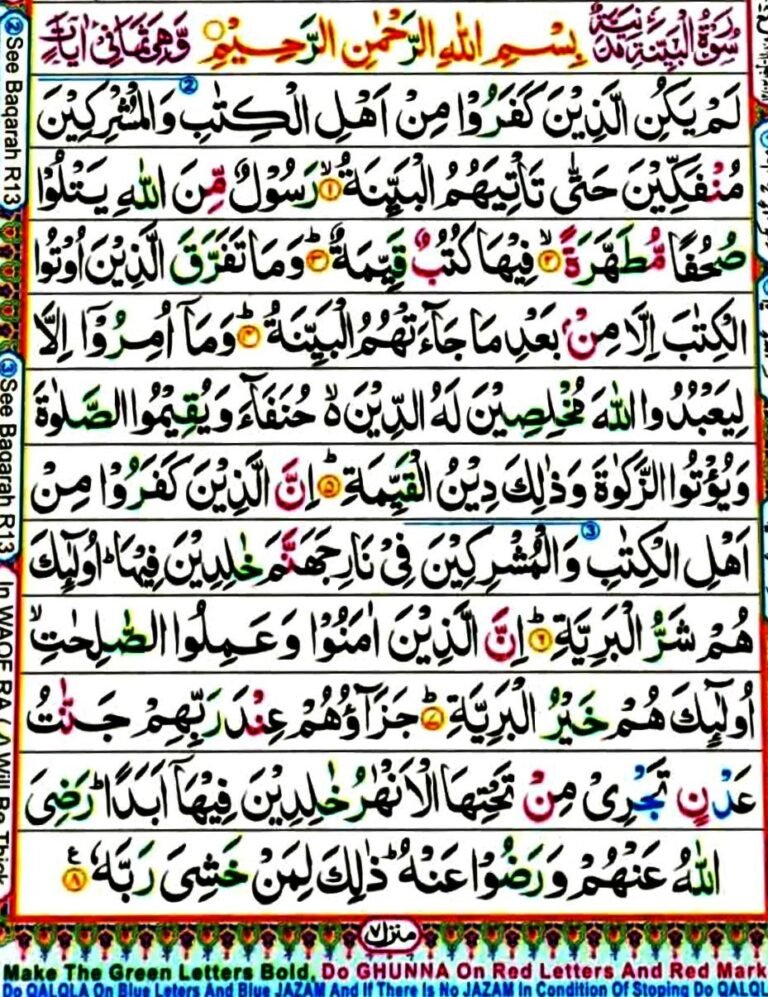 سُوْرَةُ الْبَيِّنَةِ مَدَنِيَّةٌ بِسْمِ اللهِ الرَّحْمٰنِ الرَّحِيْمِ وَهِيَ ثَمَانِيْ اٰيَاتٍ
لَمْ يَكُنِ الَّذِيْنَ كَفَرُوْا مِنْ اَهْلِ الْكِتٰبِ وَالْمُشْرِكِيْنَ
مُنْفَكِّيْنَ حَتّٰى تَاْتِيَهُمُ الْبَيِّنَةُ ۙ﴿۱﴾ رَسُوْلٌ مِّنَ اللهِ يَتْلُوْا
صُحُفًا مُّطَهَّرَةً ۙ﴿۲﴾ فِيْهَا كُتُبٌ قَيِّمَةٌ ؕ﴿۳﴾ وَمَا تَفَرَّقَ الَّذِيْنَ اُوْتُوا
الْكِتٰبَ اِلَّا مِنْۢ بَعْدِ مَا جَآءَتْهُمُ الْبَيِّنَةُ ؕ﴿۴﴾ وَمَاۤ اُمِرُوْۤا اِلَّا
لِيَعْبُدُوا اللهَ مُخْلِصِيْنَ لَهُ الدِّيْنَ ۙ۬ حُنَفَآءَ وَيُقِيْمُوا الصَّلٰوةَ
وَيُؤْتُوا الزَّكٰوةَ وَذٰلِكَ دِيْنُ الْقَيِّمَةِ ؕ﴿۵﴾ اِنَّ الَّذِيْنَ كَفَرُوْا مِنْ
اَهْلِ الْكِتٰبِ وَالْمُشْرِكِيْنَ فِيْ نَارِ جَهَنَّمَ خٰلِدِيْنَ فِيْهَا ؕ اُولٰٓئِكَ
هُمْ شَرُّ الْبَرِيَّةِ ؕ﴿۶﴾ اِنَّ الَّذِيْنَ اٰمَنُوْا وَعَمِلُوا الصّٰلِحٰتِ ۙ
اُولٰٓئِكَ هُمْ خَيْرُ الْبَرِيَّةِ ؕ﴿۷﴾ جَزَآؤُهُمْ عِنْدَ رَبِّهِمْ جَنّٰتُ
عَدْنٍ تَجْرِيْ مِنْ تَحْتِهَا الْاَنْهٰرُ خٰلِدِيْنَ فِيْهَاۤ اَبَدًا ؕ رَضِيَ
اللهُ عَنْهُمْ وَرَضُوْا عَنْهُ ؕ ذٰلِكَ لِمَنْ خَشِيَ رَبَّهٗ ﴿۸﴾
منزل ۷
② See Baqarah R13
③ See Baqarah R13
In WAQF RA (ر) Will Be Thick
Make The Green Letters Bold, Do GHUNNA On Red Letters And Red Mark
Do QALQLA On Blue Leters And Blue JAZAM And If There Is No JAZAM In Condition Of Stoping Do QALQL